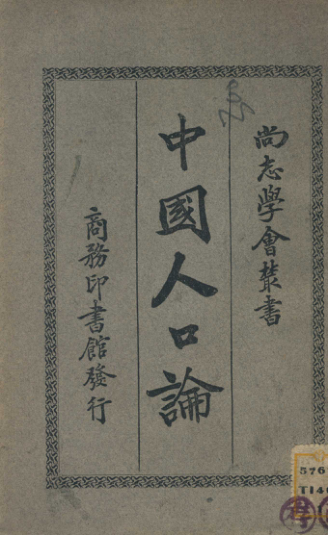 尚志學會叢書
中國人口論
商務印書館發行
576
T14